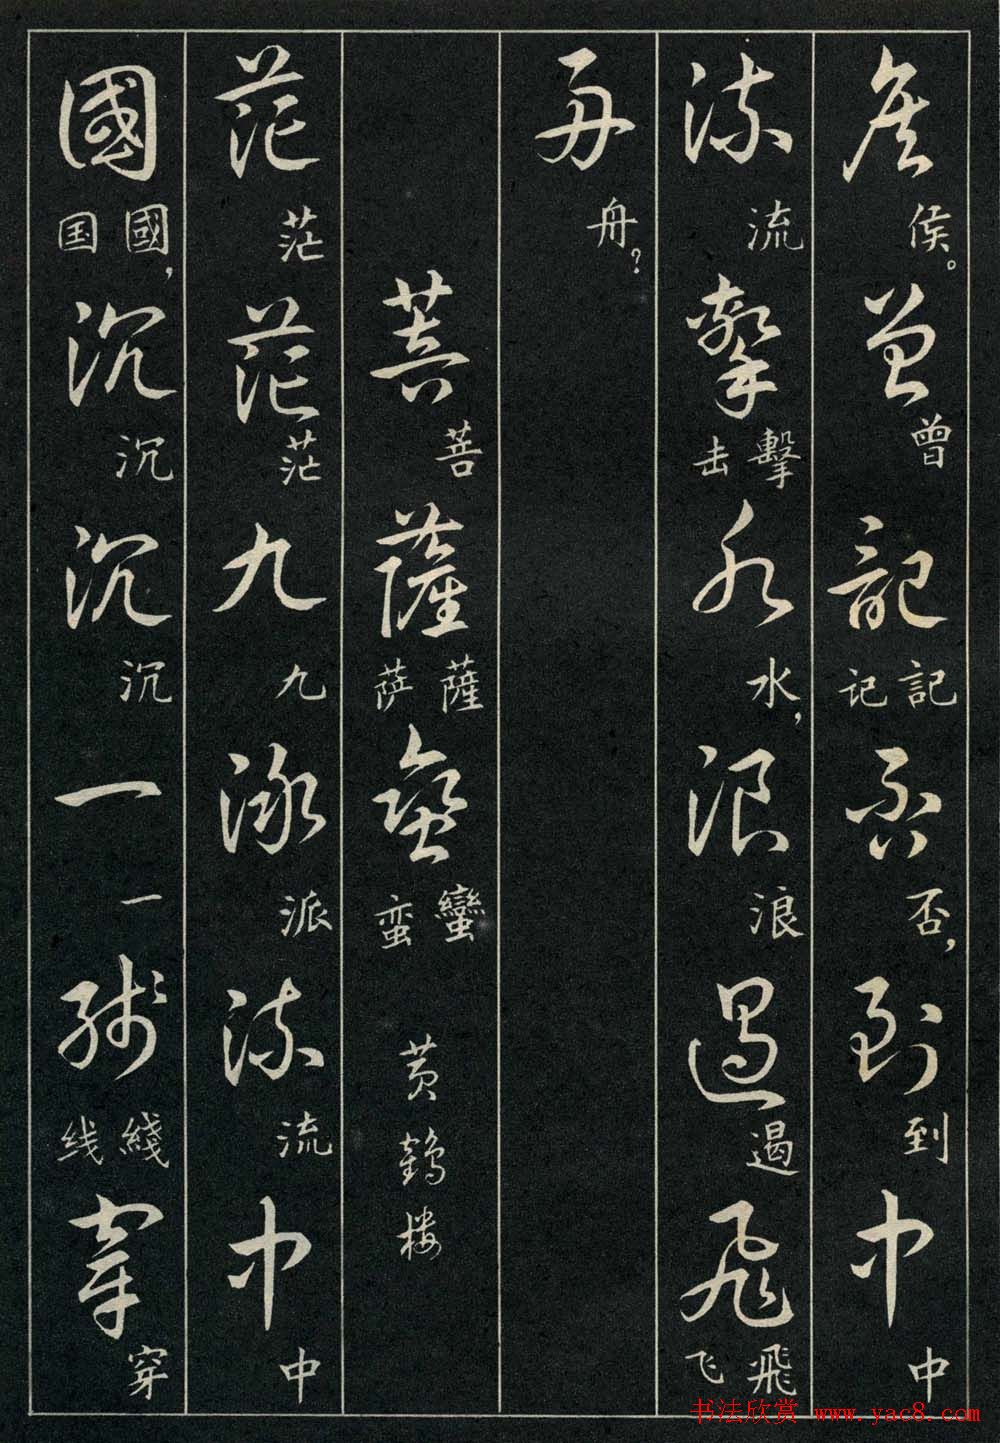 侯 侯。 曾 曾 記 記 记 否 否， 到 到 中 中
流 流 擊 擊 击 水 水， 浪 浪 遏 遏 飛 飛 飞
舟 舟？
菩 菩 薩 薩 萨 蠻 蠻 蛮 黄鶴楼
茫 茫 茫 茫 九 九 派 派 流 流 中 中
國 國， 国 沉 沉 沉 沉 一 一 綫 綫 线 穿 穿
书法欣赏 www.yac8.com